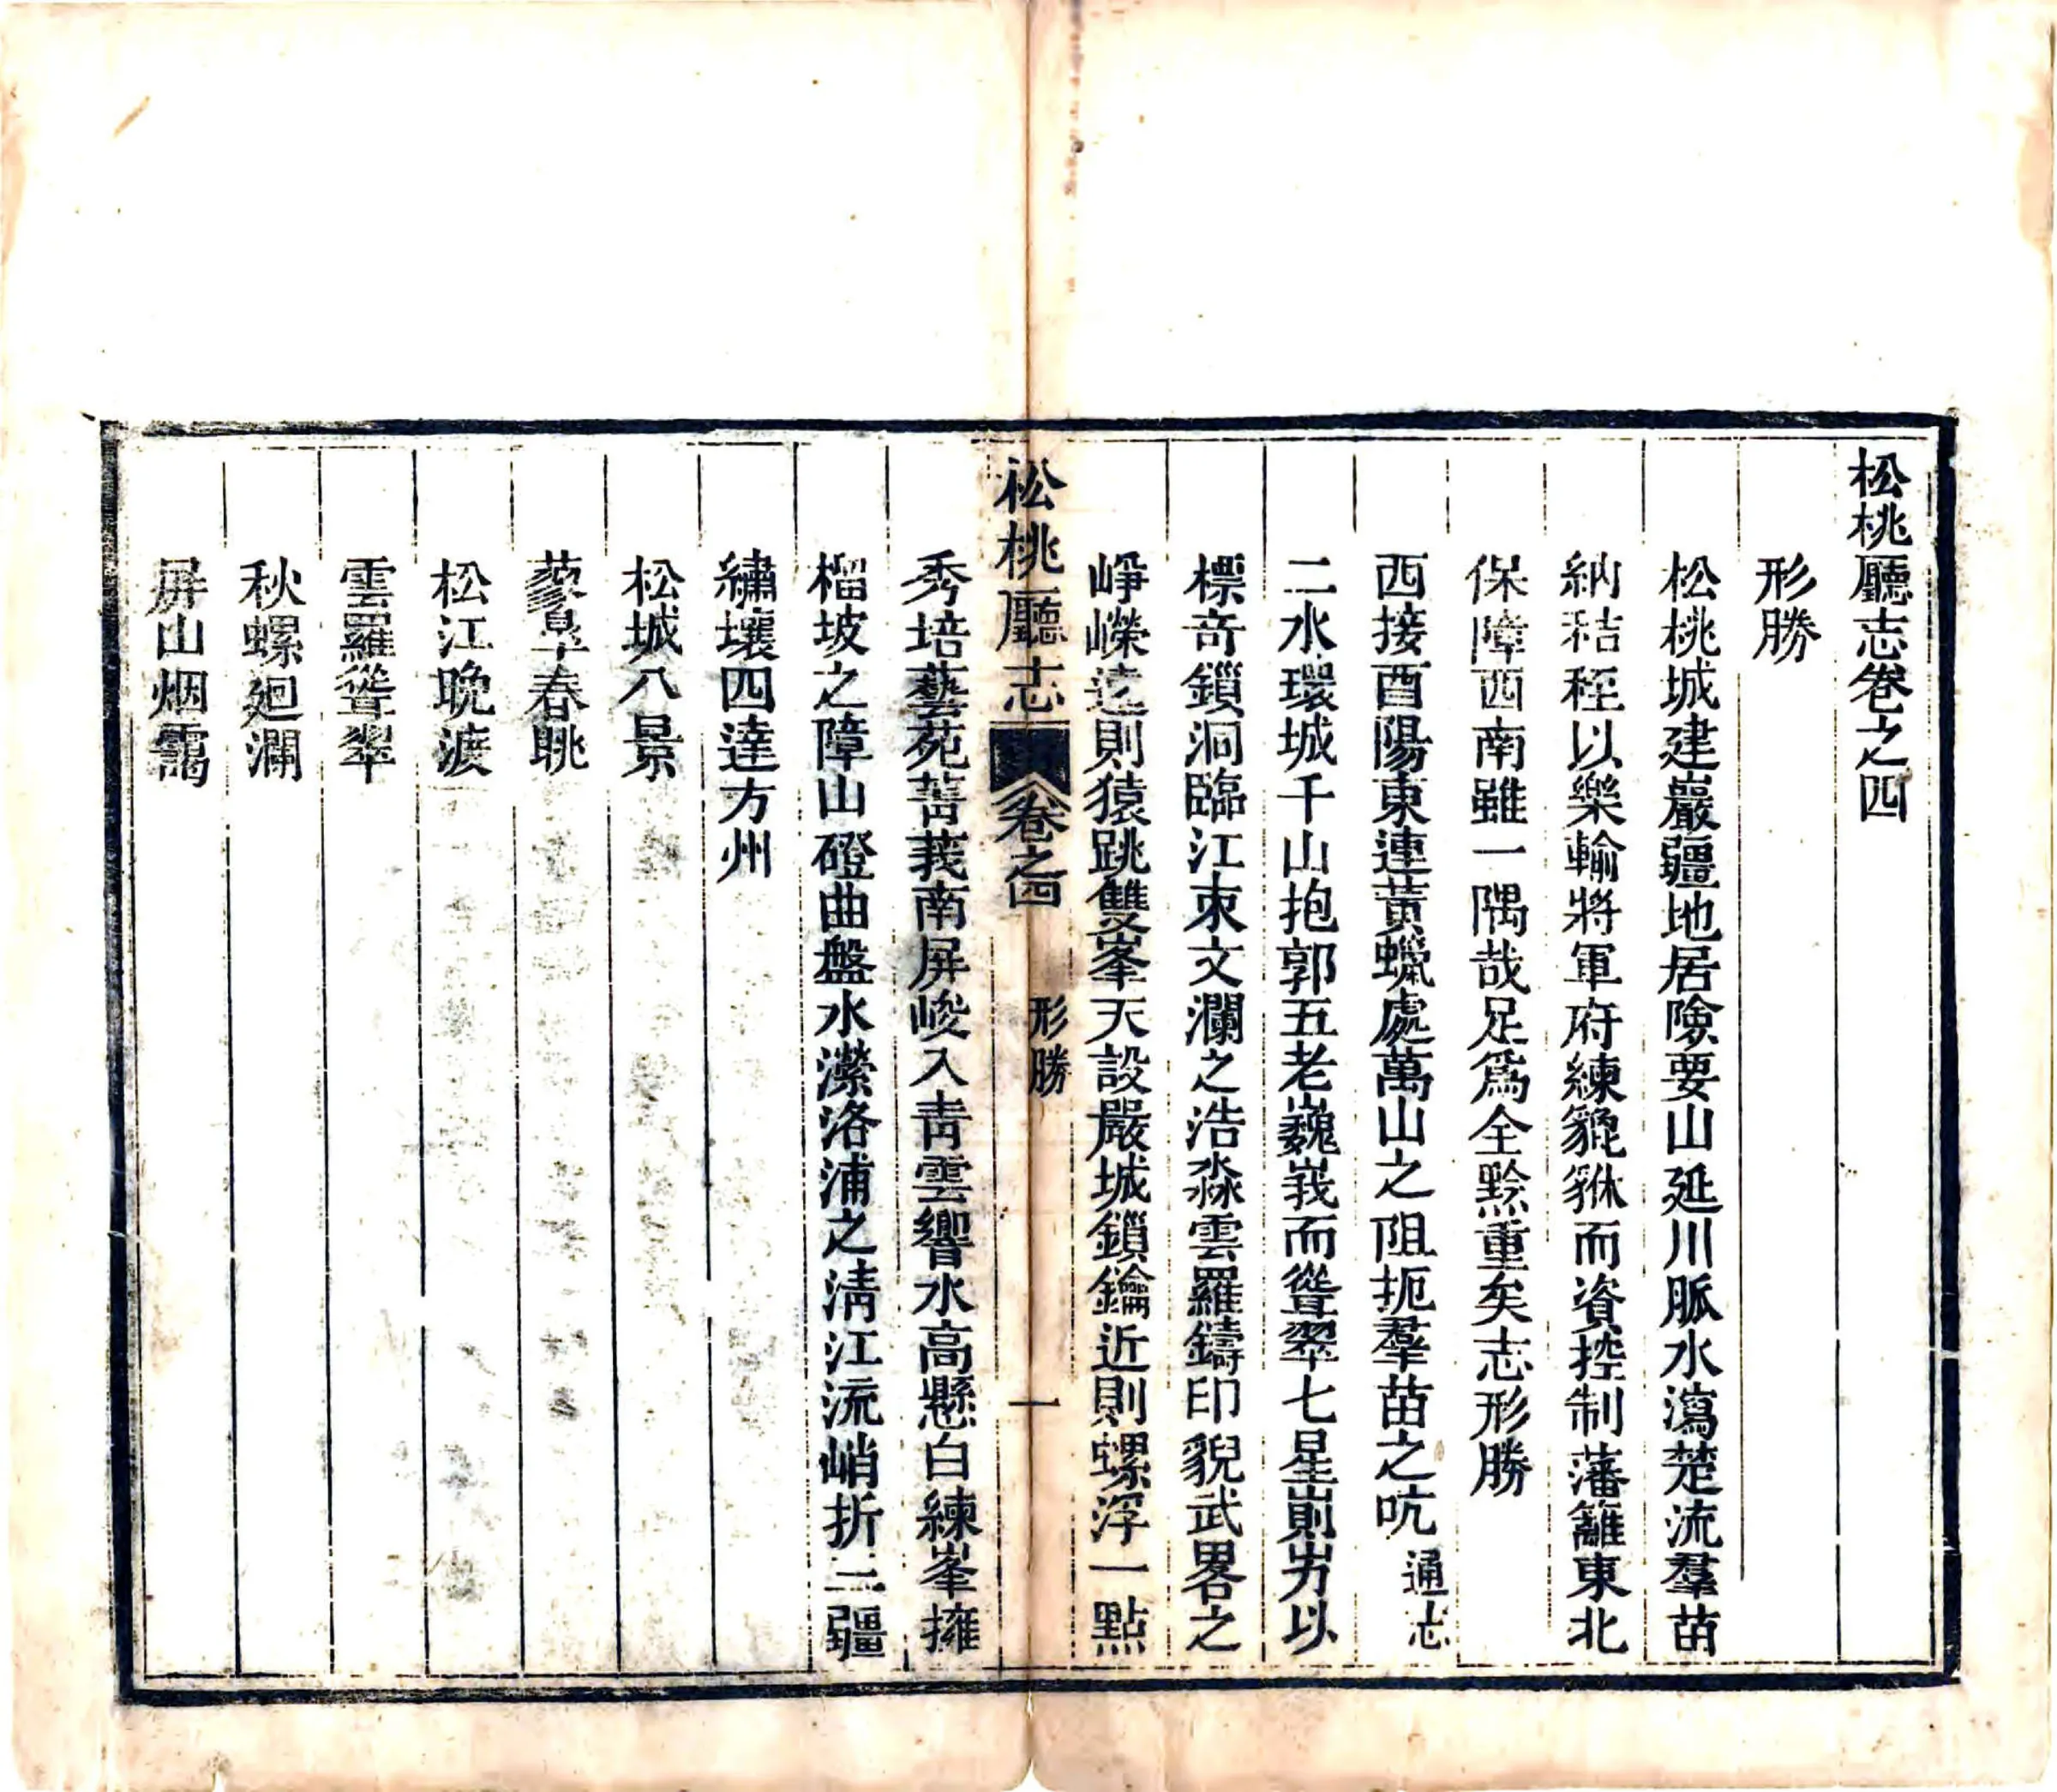 松桃廳志卷之四
形勝
松桃城建巖疆地居險要山延川脈水瀉楚流羣苗
納秸秷以樂輸將軍府練貔貅而資控制藩籬東北
保障西南雖一隅哉足爲全黔重矣志形勝
西接酉陽東連黃蠟處萬山之阻扼羣苗之吭通志
二水環城千山抱郭五老巍峩而聳翠七星崱屴以
標奇鎖洞臨江束文瀾之浩淼雲羅鑄印貎武畧之
崢嶸遠則猿跳雙峯天設嚴城鎖鑰近則螺浮一點
松桃廳志 卷之四 形勝 一
秀培藝苑菁莪南屏峻入青雲響水高懸白練峯擁
榴坡之障山磴曲盤水瀠洛浦之淸江流峭折三疆
繡壤四達方州
松城八景
蓼臯春眺
松江晚渡
雲羅聳翠
秋螺廻瀾
屏山烟靄